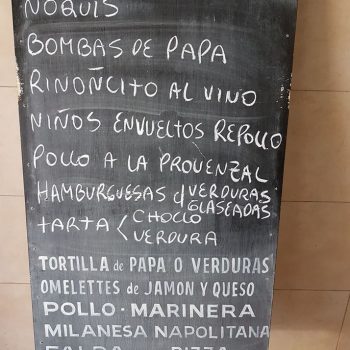 ÑOQUIS
BOMBAS DE PAPA
RIÑOÑCITO AL VINO
NIÑOS ENVUELTOS REPOLLO
POLLO A LA PROVENZAL
HAMBURGUESAS d VERDURAS GLASEADAS
TARTA < CHOCLO
VERDURA
TORTILLA de PAPA O VERDURAS
OMELETTES de JAMON Y QUESO
POLLO - MARINERA
MILANESA NAPOLITANA
PIZZA